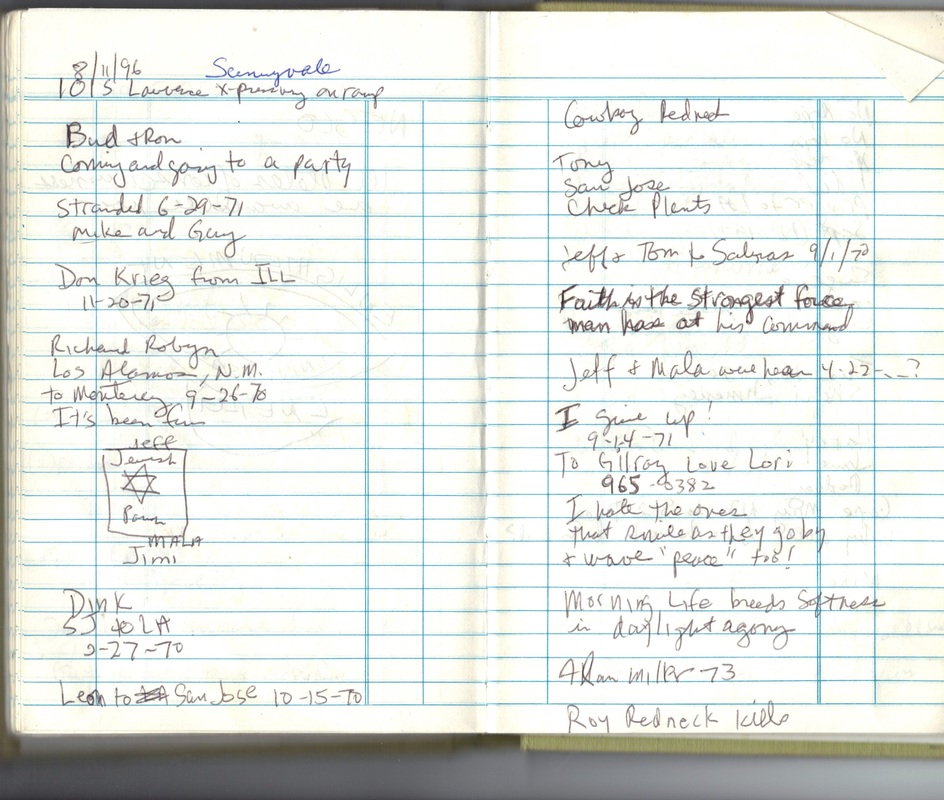 8/11/96 Sunnyvale
101 S Lawrence X-pressway onramp
Bud + Ron
Coming and going to a party
Stranded 6-29-71
Mike and Guy
Don Krieg from ILL
11-20-71
Richard Robyn
Los Alamos, N.M.
to Monterey 9-26-70
It's been fun
Jeff
Jewish
Power
MALA
Jimi
Dink
SJ to LA
-27-70
Leon to San Jose 10-15-70
Cowboy Redneck
Tony
San Jose
Check Plents
Jeff + Tom to Salinas 9/1/70
Faith is the strongest force
man has at his command
Jeff & Mala were hear 4-22-__?
I give up!
9-14-71
To Gilroy Love Lori
965-0382
I hate the ones
that smile as they go by
+ wave "peace" too!
Morning Life breeds Softness
in daylight agony
Alan Miller -73
Roy Redneck kills